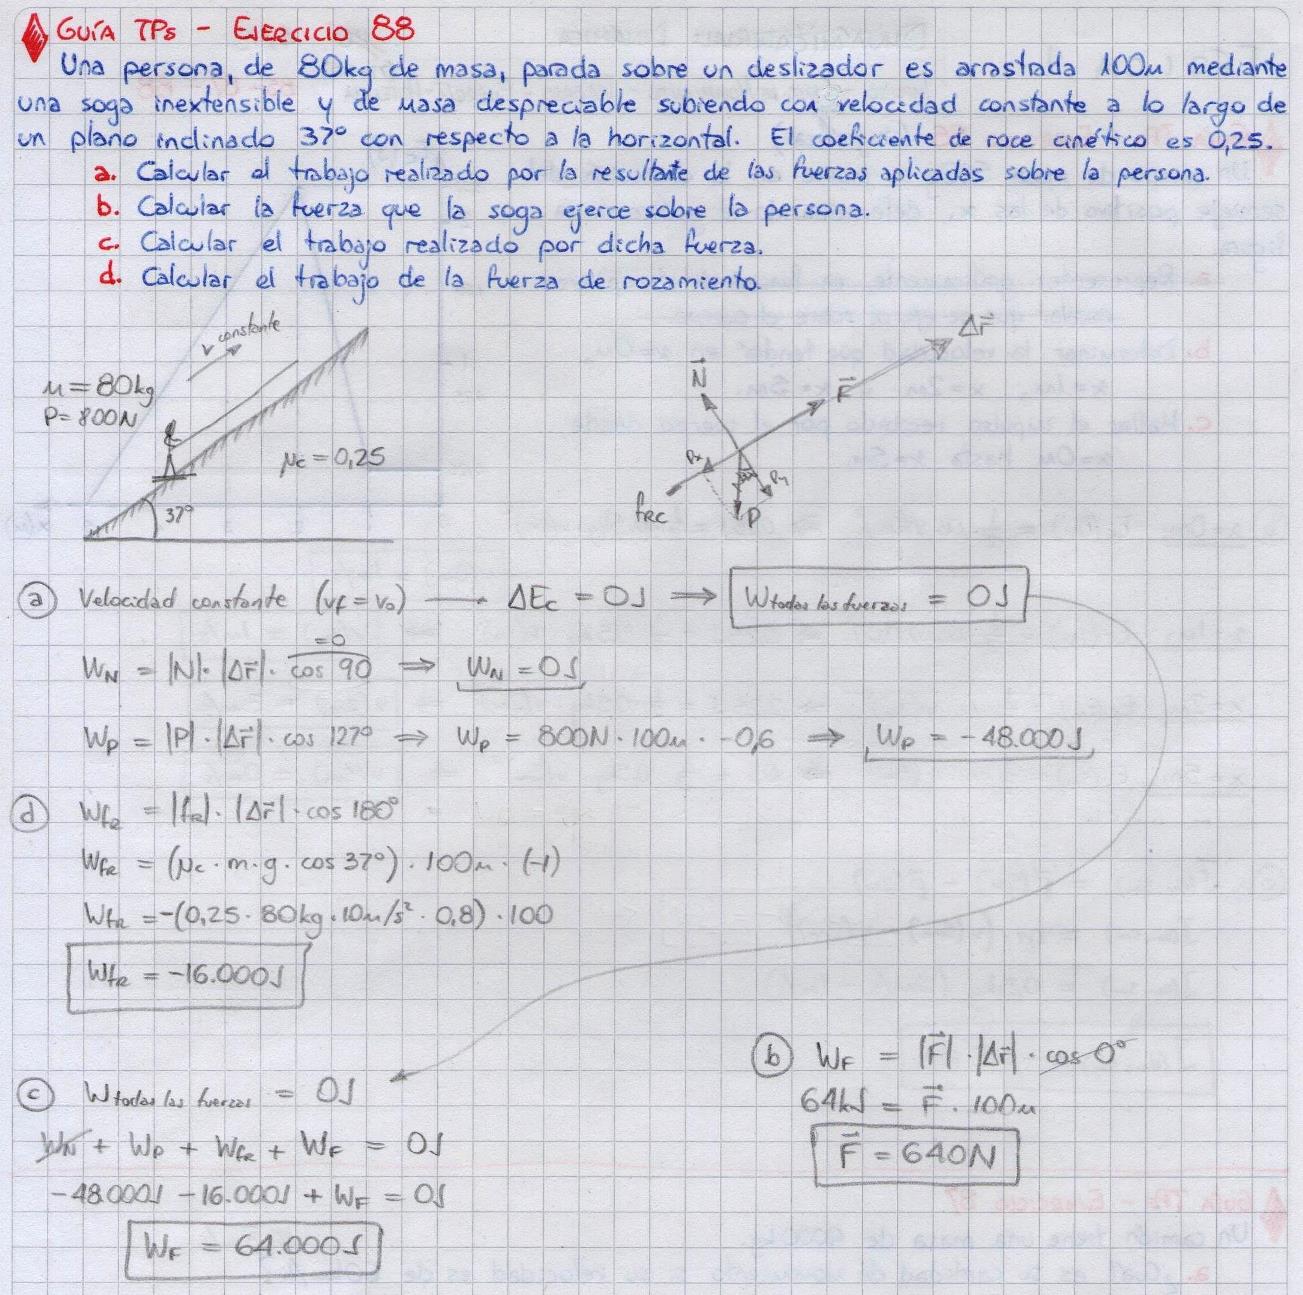 GUÍA TPs - EJERCICIO 88
Una persona, de 80kg de masa, parada sobre un deslizador es arrastrada 100m mediante
una soga inextensible y de masa despreciable subiendo con velocidad constante a lo largo de
un plano inclinado 37° con respecto a la horizontal. El coeficiente de roce cinético es 0,25.
a. Calcular el trabajo realizado por la resultante de las fuerzas aplicadas sobre la persona.
b. Calcular la fuerza que la soga ejerce sobre la persona.
c. Calcular el trabajo realizado por dicha fuerza.
d. Calcular el trabajo de la fuerza de rozamiento.
v constante
m = 80kg
P = 800N
μc = 0,25
37°
N⃗
F⃗
Δr⃗
Px
Py
P
fRC
a Velocidad constante (vf = v0) — ΔEc = 0J ⟹ Wtodas las fuerzas = 0J
=0
WN = |N| · |Δr⃗| · cos 90 ⟹ WN = 0J
WP = |P| · |Δr⃗| · cos 127° ⟹ WP = 800N · 100m · -0,6 ⟹ WP = -48.000J
d WfR = |fR| · |Δr⃗| · cos 180°
WfR = (μc · m · g · cos 37°) · 100m · (-1)
WfR = -(0,25 · 80kg · 10m/s² · 0,8) · 100
WfR = -16.000J
c Wtodas las fuerzas = 0J
WN + WP + WfR + WF = 0J
-48.000J -16.000J + WF = 0J
WF = 64.000J
b WF = |F⃗| · |Δr⃗| · cos 0°
64kJ = F⃗ · 100m
F⃗ = 640N